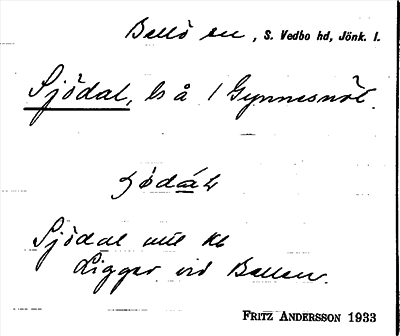 Bellö sn, S. Vedbo hd, Jönk. l.
Sjödal, ls å 1 Gynnesnöt.
Sjödal
Ligger vid Bellen.
FRITZ ANDERSSON 1933